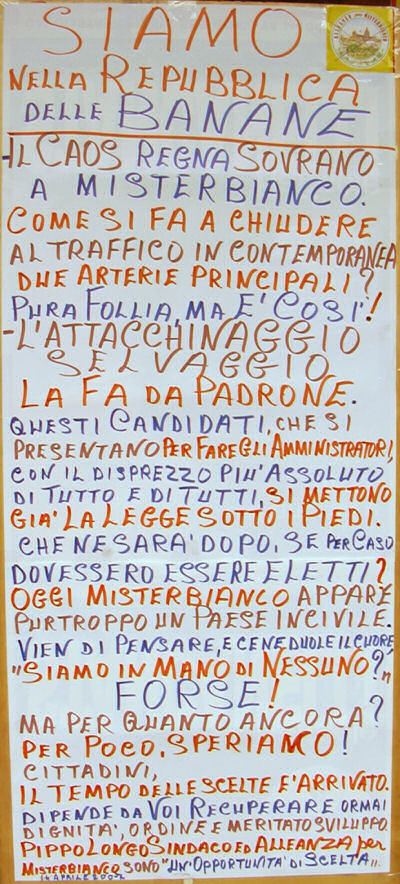 SIAMO
NELLA REPUBBLICA
DELLE BANANE
-IL CAOS REGNA SOVRANO
A MISTERBIANCO.
COME SI FA A CHIUDERE
AL TRAFFICO IN CONTEMPORANEA
DUE ARTERIE PRINCIPALI?
PURA FOLLIA, MA E' COSI'!
-L'ATTACCHINAGGIO
SELVAGGIO
LA FA DA PADRONE.
QUESTI CANDIDATI, CHE SI
PRESENTANO PER FARE GLI AMMINISTRATORI,
CON IL DISPREZZO PIU' ASSOLUTO
DI TUTTO E DI TUTTI, SI METTONO
GIA' LA LEGGE SOTTO I PIEDI.
CHE NE SARA' DOPO, SE PER CASO
DOVESSERO ESSERE ELETTI?
OGGI MISTERBIANCO APPARE
PURTROPPO UN PAESE INCIVILE.
VIEN DI PENSARE, E CE NE DUOLE IL CUORE,
"SIAMO IN MANO DI NESSUNO?"
FORSE!
MA PER QUANTO ANCORA?
PER POCO, SPERIAMO!
CITTADINI,
IL TEMPO DELLE SCELTE E' ARRIVATO.
DIPENDE DA VOI RECUPERARE ORMAI
DIGNITA', ORDINE E MERITATO SVILUPPO.
PIPPO LONGO SINDACO ED ALLEANZA per
MISTERBIANCO SONO "UN'OPPORTUNITA' DI SCELTA".